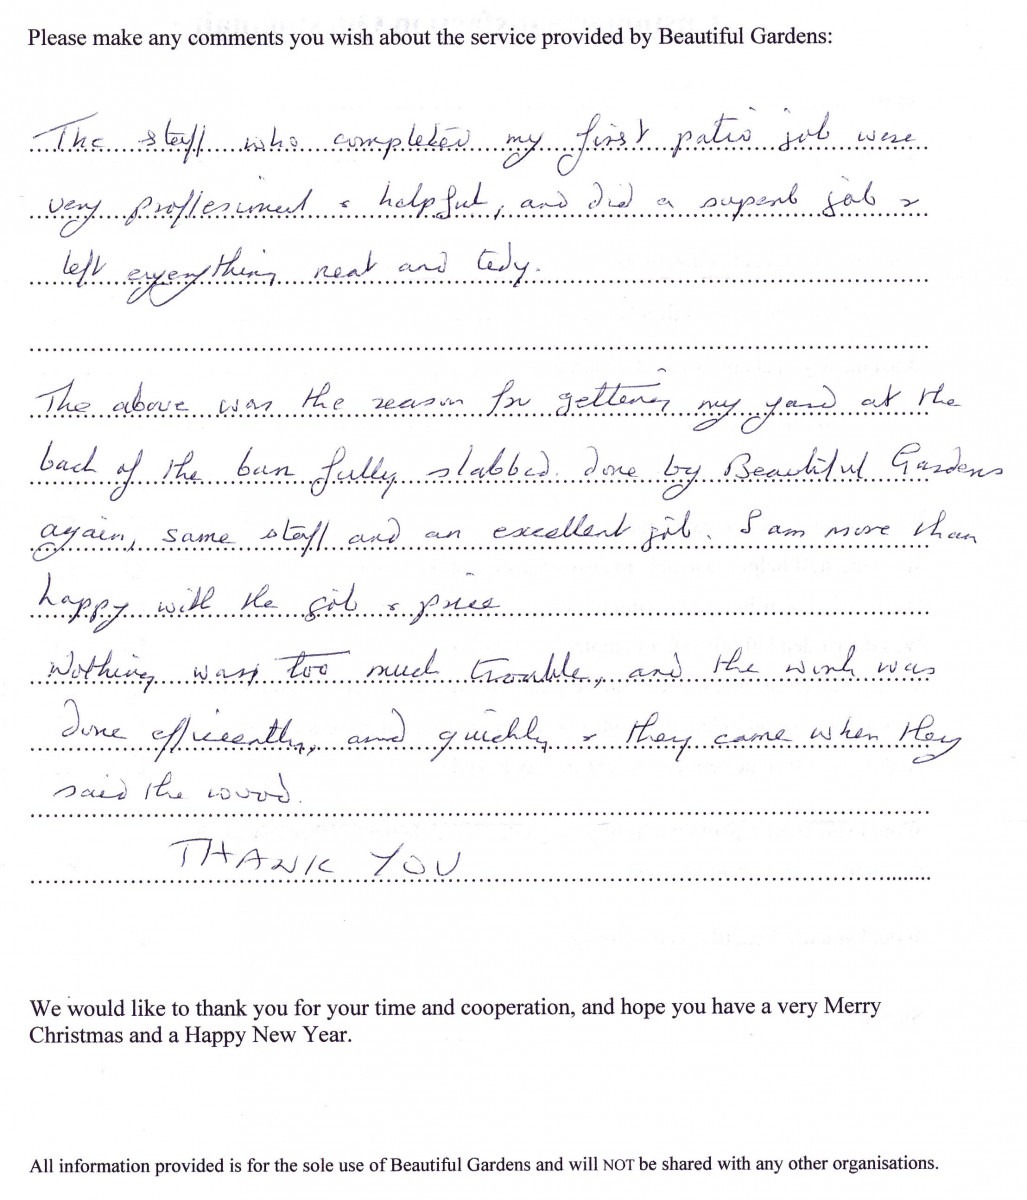 Please make any comments you wish about the service provided by Beautiful Gardens:
The staff who completed my first patio job were
very proffesional & helpful, and did a superb job &
left everything neat and tidy.
The above was the reason for getting my yard at the
back of the barn fully slabbed. Done by Beautiful Gardens
again, same staff and an excellent job. I am more than
happy with the job & price
Nothing was too much trouble, and the work was
done efficently, and quickly & they came when they
said the would.
THANK YOU
We would like to thank you for your time and cooperation, and hope you have a very Merry
Christmas and a Happy New Year.
All information provided is for the sole use of Beautiful Gardens and will NOT be shared with any other organisations.